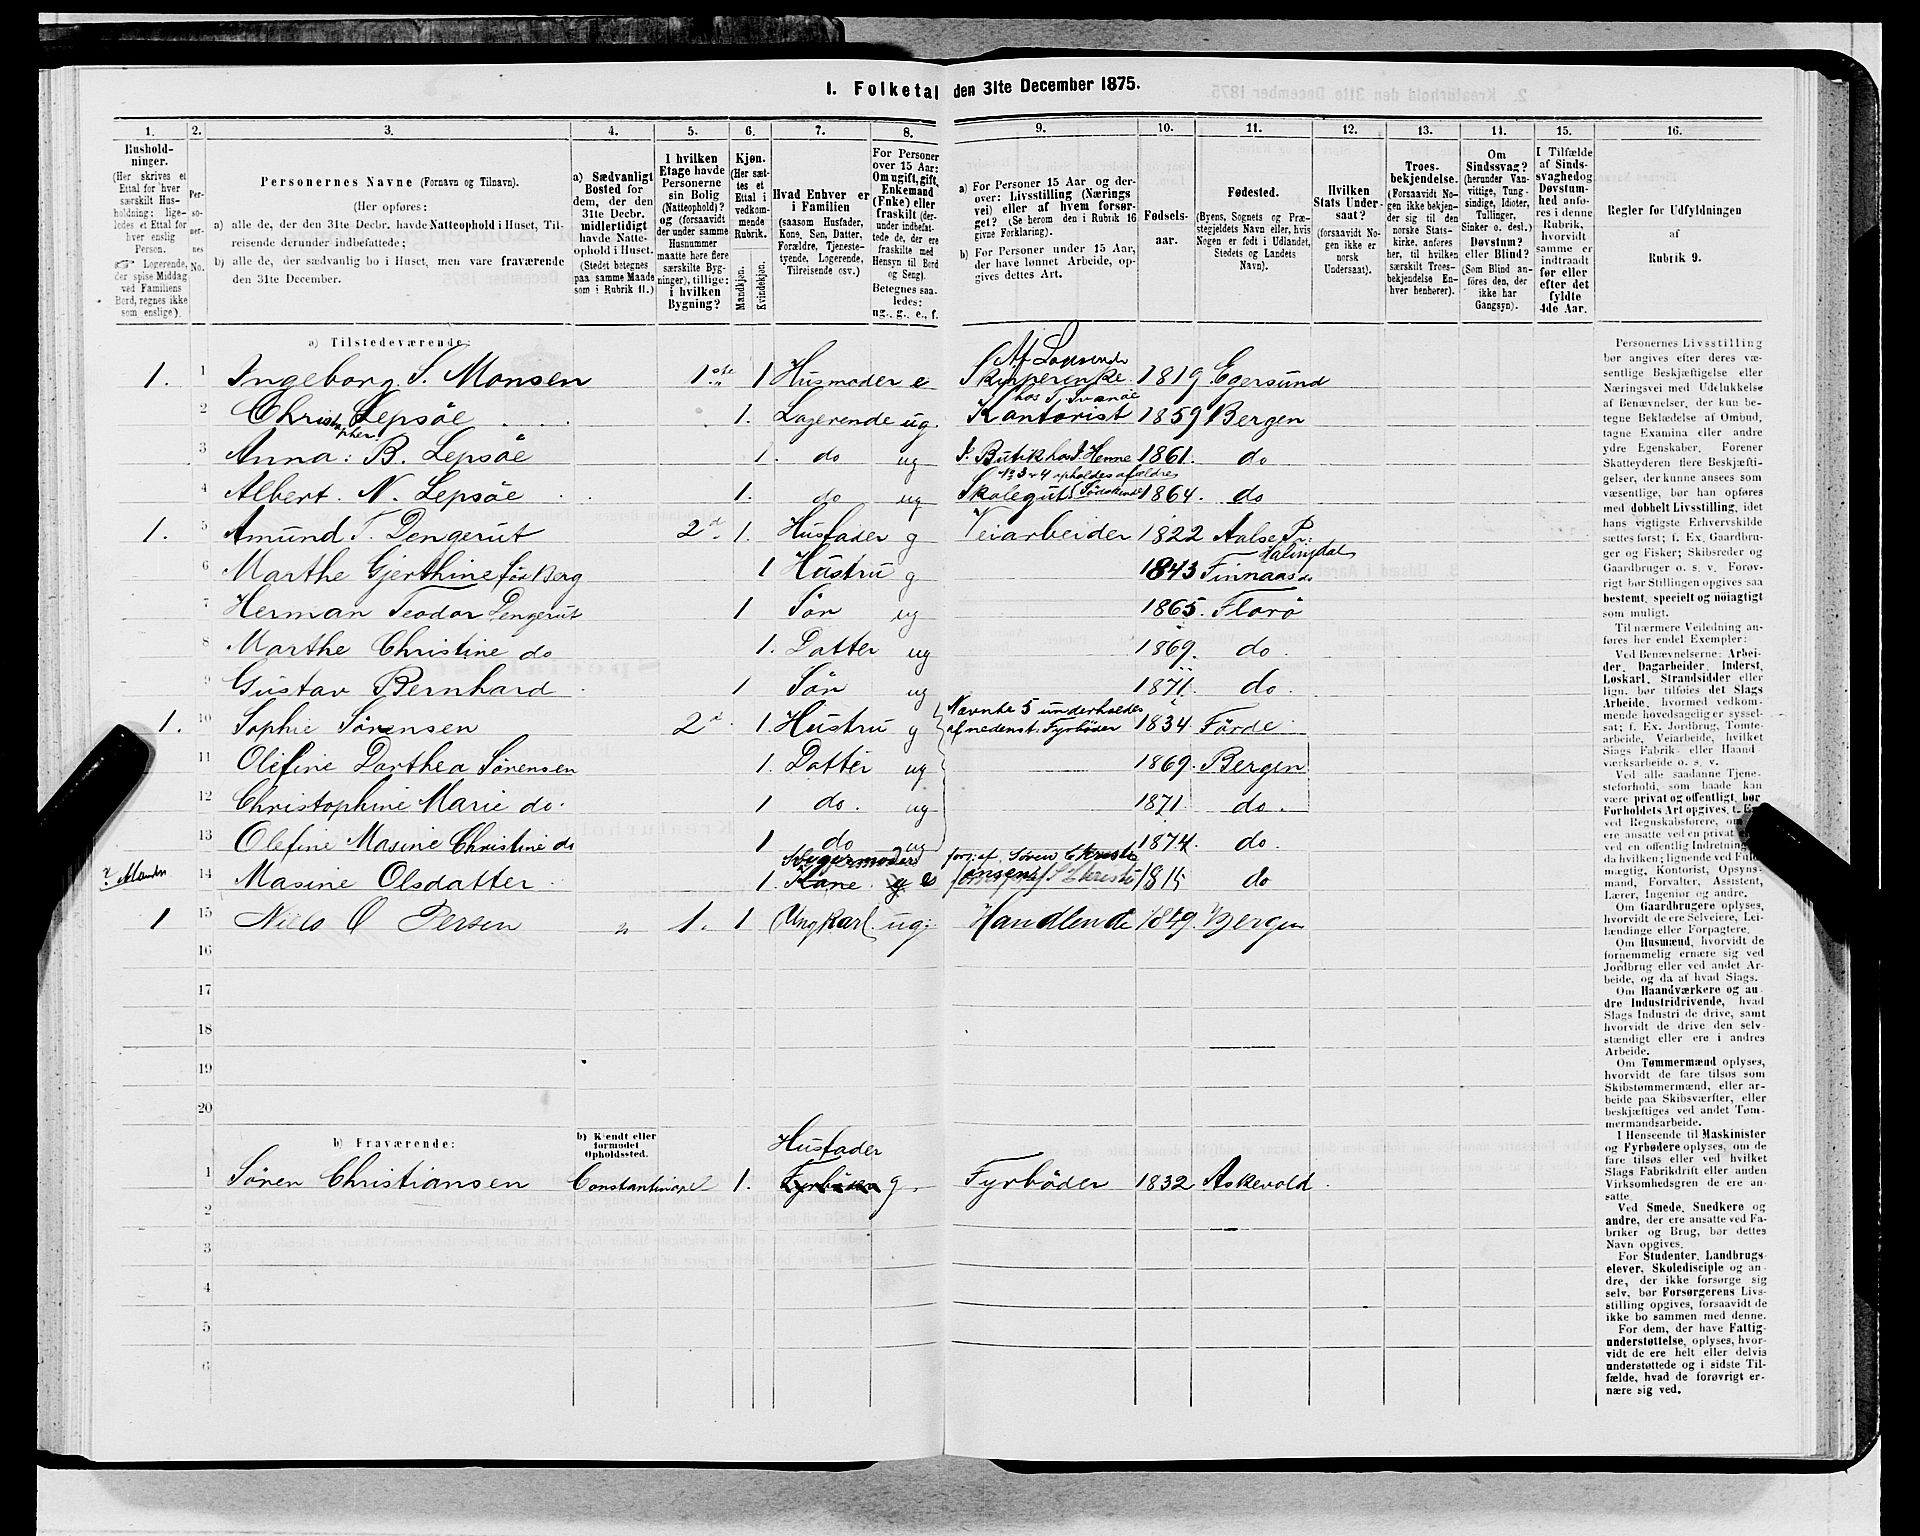 1. Folketal den 31te December 1875.
1. 2. 3. 4. 5. 6. 7. 8. 9. 10. 11. 12. 13. 14. 15. 16.
Husholdninger.
(Her skrives et Ettal for hver særskilt Husholdning: ligeledes et Ettal for hver enslig Person.
☞ Logerende, der spise Middag ved Familiens Bord, regnes ikke som enslige).
Personernes No.
Personernes Navne (Fornavn og Tilnavn).
(Her opføres:
a) alle de, der den 31te Decbr. havde Natteophold i Huset, Tilreisende derunder indbefattede;
b) alle de, der sædvanlig bo i Huset, men vare fraværende den 31te December.
a) Sædvanligt Bosted for dem, der den 31te Decbr. midlertidigt havde Natteophold i Huset.
(Stedet betegnes paa samme Maade som i Rubrik 11.)
I hvilken Etage havde Personerne sin Bolig (Natteophold)? og (forsaavidt der under samme Husnummer maatte høre flere særskilte Bygninger), tillige: i hvilken Bygning?
Kjøn.
(Her sættes et Ettal i vedkommende Rubrik.
Mandkjøn.
Kvindekjøn.
Hvad Enhver er i Familien
(saasom Husfader, Kone, Søn, Datter, Forældre, Tjenestetyende, Logerende, Tilreisende osv.)
For Personer over 15 Aar: Om ugift, gift, Enkemand (Enke) eller fraskilt (derunder indbefattede de, der ere fraskilte med Hensyn til Bord og Seng).
Betegnes saaledes: ug., g., e., f.
a) For Personer 15 Aar og derover: Livsstilling (Næringsvei) eller af hvem forsørget? (Se herom den i Rubrik 16 givne Forklaring).
b) For Personer under 15 Aar, der have lønnet Arbeide, opgives dettes Art.
Fødselsaar.
Fødested.
(Byens, Sognets og Præstegjeldets Navn eller, hvis Nogen er født i Udlandet, Stedets og Landets Navn).
Hvilken Stats Undersaat?
(forsaavidt Nogen ikke er norsk Undersaat).
Troesbekjendelse.
(Forsaavidt Nogen ikke bekjender sig til den norske Statskirke, anføres her, til hvilken særskilt Troesbekjendelse Enhver henhører).
Om Sindssvag?
(herunder Vanvittige, Tungsindige, Idioter, Tullinger, Sinker o. desl.)
Døvstum? eller Blind?
(Som Blind anføres den, der ikke har Gangsyn).
I Tilfælde af Sindssvaghed og Døvstumhed anføres i denne Rubrik, hvorvidt samme er indtraadt før eller efter det fyldte 4de Aar.
Regler for Udfyldningen af Rubrik 9.
a) Tilstedeværende:
1. 1 Ingeborg. S. Monsen 1ste 1 Husmoder e Skipperenke. 1819 Egersund
2 Christopher Lepsöe 1. Logerende ug. Kantorist 1859 Bergen
3 Anna: B. Lepsöe 1. do ug I. Butik hos J. Henne 1861. do
No 3 & 4 opholdes af ældre
4 Albert. N. Lepsöe 1. do ug Skolegut (Söskende 1864. do
1. 5 Amund T. Dengerut 2d. 1. Husfader g Veiarbeider 1822 Aalse Pr: Halingdal
6 Marthe Gjerthine før Berg 1 Hustru g 1843 Finnaas
7 Herman Teodor Dengerut 1 Sön ug 1865. Florö
8 Marthe Christine do 1. Datter ug 1869. do
9 Gustav Bernhard 1 Sön ug 1871. do.
1. 10 Sophie Sörensen 2d. 1. Hustru g Nævnte 5 underholdes af nedenst. Fyrböder 1834 Förde
11 Olefine Dorthea Sörensen 1. Datter ug 1869. Bergen
12 Christophine Marie do. 1 do. ug 1871. do.
13 Olefine Masine Christine do 1 do ug 1874. do.
14 Masine Olsdatter 1. Svigermoder Kone g e forg: af. Sören Christiansen 1815 do
1 15 Niels O Persen " 1. 1 Ungkarl. ug. Handlende 1849. Bergen
16
17
18
19
20
b) Fraværende:
b) Kjendt eller formodet Opholdssted.
1 Sören Christiansen Constantinopel 1. Husfader Fyrböder g. Fyrböder 1832 Askevold.
2
3
4
5
6
Personernes Livsstilling bør angives efter deres væsentlige Beskjæftigelse eller Næringsvei med Udelukkelse af Benævnelser, der kun betegne Beklædelse af Ombud, tagne Examina eller andre ydre Egenskaber. Forener Skatteyderen flere Beskjæftigelser, der kunne ansees som væsentlige, bør han opføres med dobbelt Livsstilling, idet hans vigtigste Erhvervskilde sættes først; f. Ex. Gaardbruger og Fisker; Skibsreder og Gaardbruger o. s. v. Forøvrigt bør Stillingen opgives saa bestemt, specielt og nöiagtigt som muligt.
Til nærmere Veiledning anføres her endel Exempler:
Ved Benævnelserne: Arbeider, Dagarbeider, Inderst, Løskarl, Strandsidder eller lign. bør tilføies det Slags Arbeide, hvormed vedkommende hovedsagelig er sysselsat; f. Ex. Jordbrug, Tomtearbeide, Veiarbeide, hvilket Slags Fabrik- eller Haandværksarbeide o. s. v.
Ved alle saadanne Tjenesteforhold, som baade kan være privat og offentligt, bør Forholdets Art opgives,
Om Gaardbrugere oplyses, hvorvidt de ere Selveiere, Leilændinge eller Forpagtere.
Om Husmænd, hvorvidt de fornemmelig ernære sig ved Jordbrug eller ved andet Arbeide, og da af hvad Slags.
Om Haandværkere og andre Industridrivende, hvad Slags Industri de drive, samt hvorvidt de drive den selvstændigt eller ere i andres Arbeide.
Om Tømmermænd oplyses, hvorvidt de fare tilsøs som Skibstømmermænd, eller arbeide paa Skibsværfter, eller beskjæftiges ved andet Tømmermandsarbeide.
I Henseende til Maskinister og Fyrbødere oplyses, om de fare tilsøs eller ved hvilket Slags Fabrikdrift eller anden Virksomhedsgren de ere ansatte.
Ved Smede, Snedkere og andre, der ere ansatte ved Fabriker og Brug, bør dettes Navn opgives.
For Studenter, Landbrugselever, Skoledisciple og andre, der ikke forsørge sig selv, bør Forsørgerens Livsstilling opgives, forsaavidt de ikke bo sammen med denne.
For dem, der have Fattigunderstøttelse, oplyses, hvorvidt de ere helt eller delvis understøttede og i sidste Tilfælde, hvad de forøvrigt ernære sig ved.